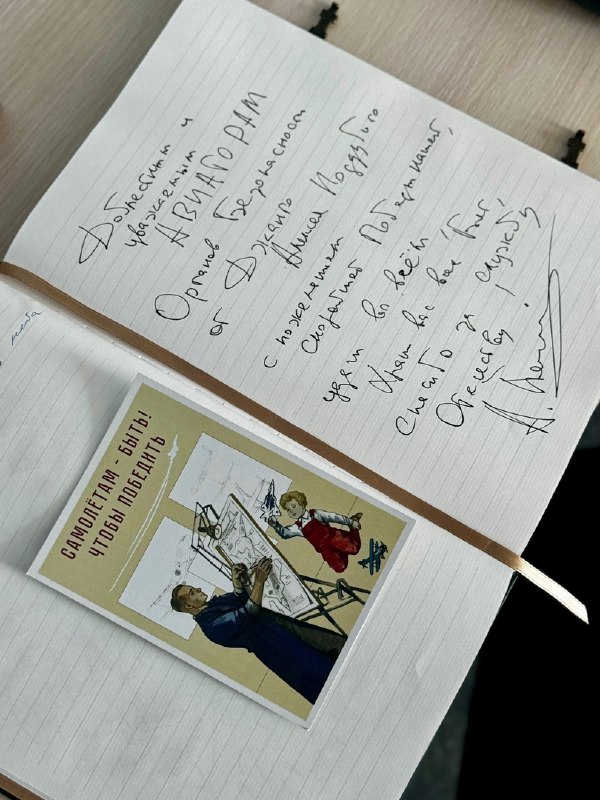 Доблестным и
уважаемым
АВИАТОРАМ
Органов Безопасности
от Джанго
Алексея Поддубного
с пожеланием
скорейшей Победы нашей,
удачи во всём!
Храни вас всех Бог,
Спасибо за службу
Отечеству!
САМОЛЁТАМ - БЫТЬ!
ЧТОБЫ ПОБЕДИТЬ